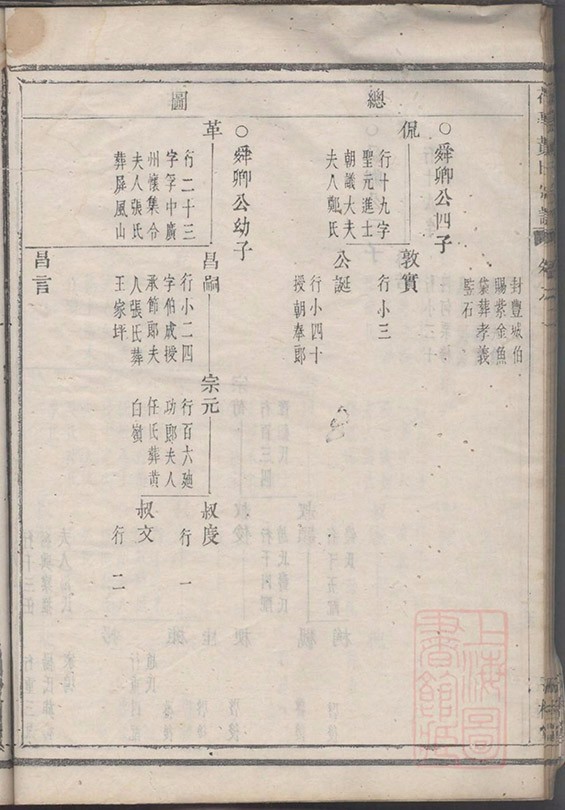 總
圖
封豐城伯
賜紫金魚
袋葬孝義
監石
○舜卿公四子
侃
行十九字
聖元進士
朝議大夫
夫人鄭氏
敦實
行小三
公誕
行小四十
授朝奉郎
○舜卿公幼子
革
行二十三
字孚中廣
州懷集令
夫人張氏
葬屏風山
昌嗣
行小二四
字伯成授
承節郎夫
人張氏葬
王家坪
宗元
行百六廸
功郎夫人
任氏葬黄
白嶺
叔度
行一
叔文
行二
昌言
上海圖
書館藏